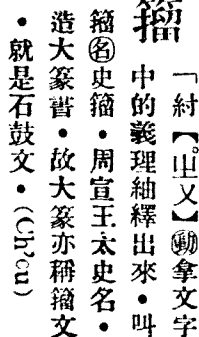 籀
「紂【ㄓㄡ】動拿文字
中的義理紬繹出來・叫
籀名史籀・周宣王太史名・
造大篆書・故大篆亦稱籀文
・就是石鼓文・(Ch'ou)